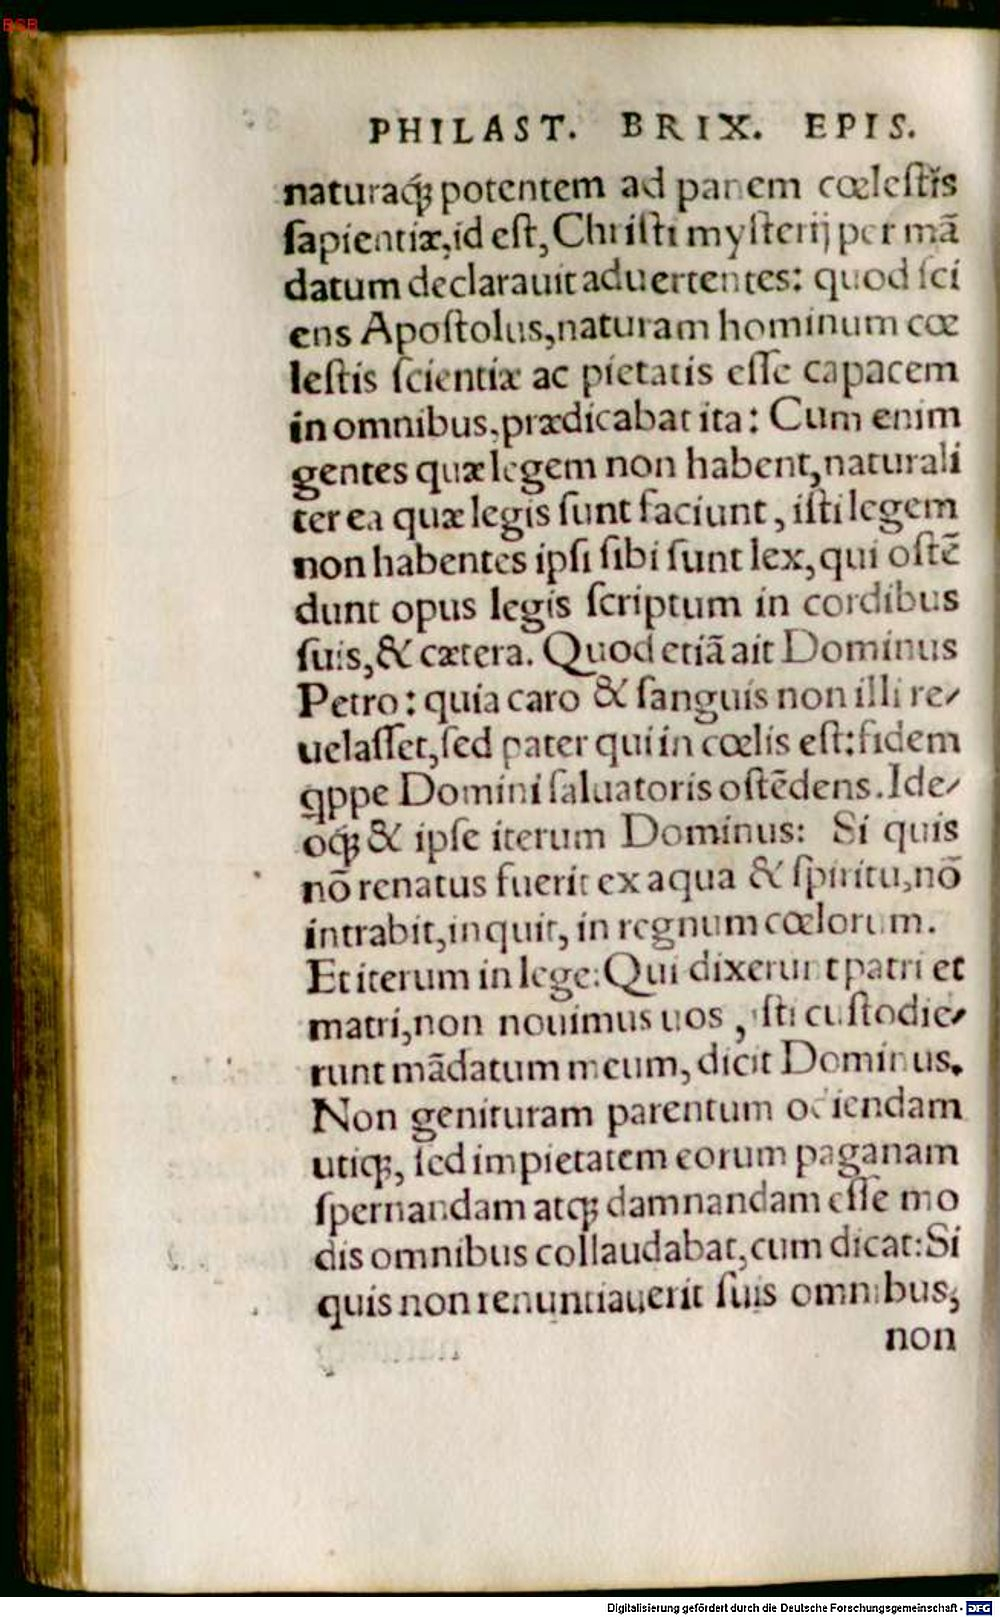 BSB
PHILAST. BRIX. EPIS.
naturaq́ꝫ potentem ad panem cœlestis
sapientiæ, id est, Christi mysterij per mā
datum declarauit aduertentes: quod sci
ens Apostolus, naturam hominum cœ
lestis scientiæ ac pietatis esse capacem
in omnibus, prædicabat ita: Cum enim
gentes quæ legem non habent, naturali
ter ea quæ legis sunt faciunt, isti legem
non habentes ipsi sibi sunt lex, qui ostē
dunt opus legis scriptum in cordibus
suis, & cætera. Quod etiā ait Dominus
Petro: quia caro & sanguis non illi re-
uelasset, sed pater qui in cœlis est: fidem
qppe Domini saluatoris ostēdens. Ide-
oq́ꝫ & ipse iterum Dominus: Si quis
nō renatus fuerit ex aqua & spiritu, nō
intrabit, inquit, in regnum cœlorum.
Et iterum in lege: Qui dixerunt patri et
matri, non nouimus uos, isti custodie-
runt mādatum meum, dicit Dominus.
Non genituram parentum odiendam
utiqꝫ, sed impietatem eorum paganam
spernandam atqꝫ damnandam esse mo
dis omnibus collaudabat, cum dicat: Si
quis non renuntiauerit suis omnibus,
non
Digitalisierung gefördert durch die Deutsche Forschungsgemeinschaft - DFG